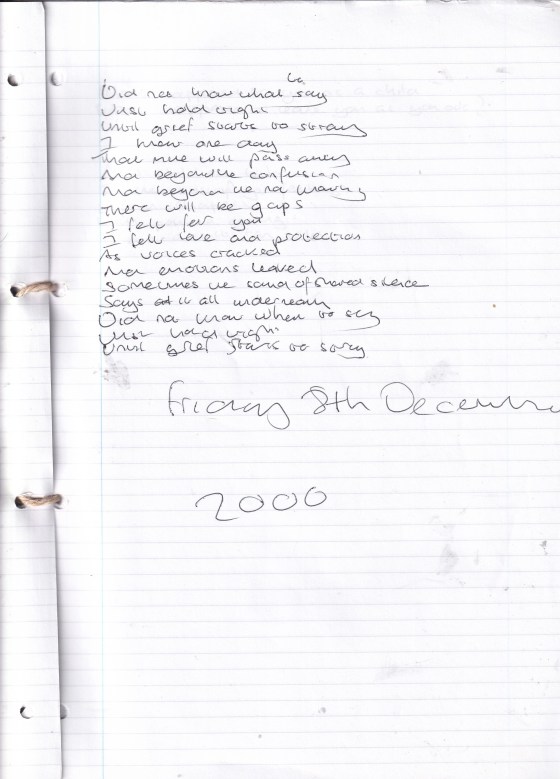 to
Did not know what say
Just hold tight
Until grief starts to stray
I knew one day
That mine will pass away
And beyond the confusion
And beyond the not knowing
There will be gaps
I felt for you
I felt love and protection
As voices cracked
And emotions leaked
Sometimes the sound of shared silence
Says it all underneath
Did not know when to say
Just hold tight
Until grief starts to stray
Friday 8th December
2000